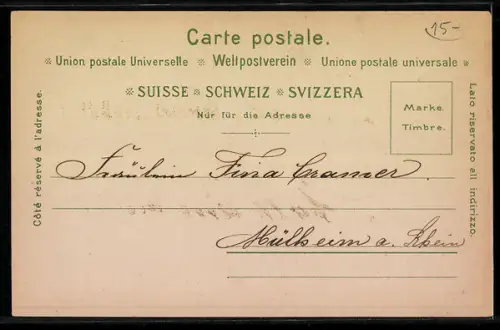 15-
Carte postale.
※ Union postale Universelle ※ Weltpostverein ※ Unione postale universale ※
※ SUISSE ※ SCHWEIZ ※ SVIZZERA
Nur für die Adresse
Marke.
Timbre.
Côté réservé à l'adresse.
Lato riservato all indirizzo.
Fräulein Fina Cramer.
Mülheim a. Rhein